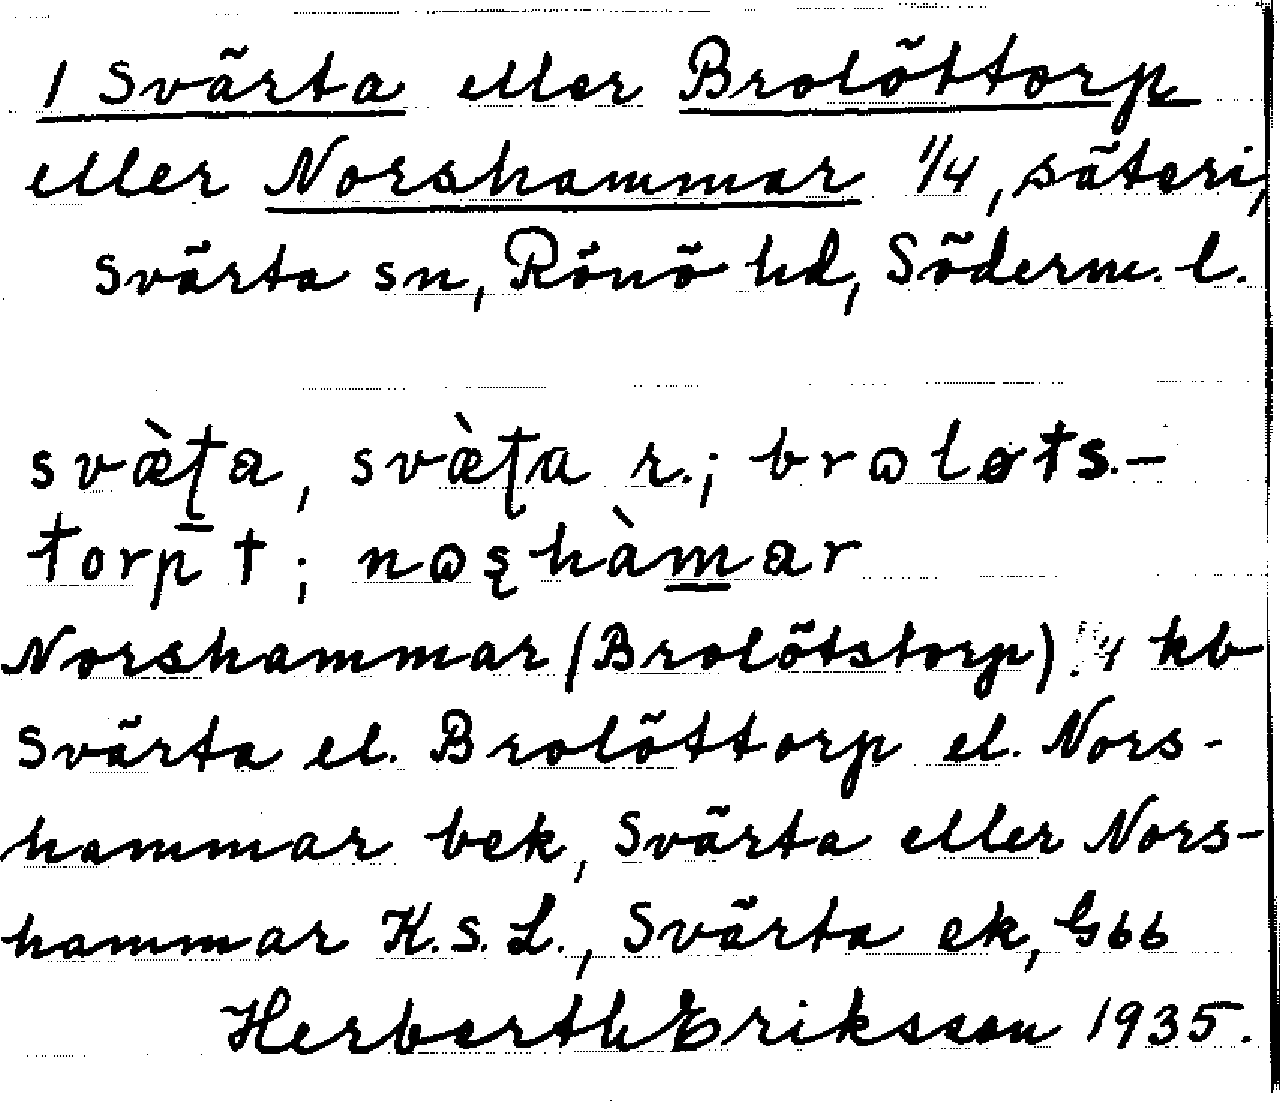 1 Svärta eller Brolöttorp
eller Norshammar 1/4, säteri,
Svärta sn, Rönö hd, Söderm. l.
svæ̀ʈa, svæ̀ʈa r.; brɷløts.-
torp̄ t; nɷʂhàm̲ar
Norshammar (Brolötstorp) 1/4 kb
Svärta el. Brolöttorp el. Nors-
hammar bek, Svärta eller Nors-
hammar K.S.L., Svärta ek, Gbb
Herberth Eriksson 1935.